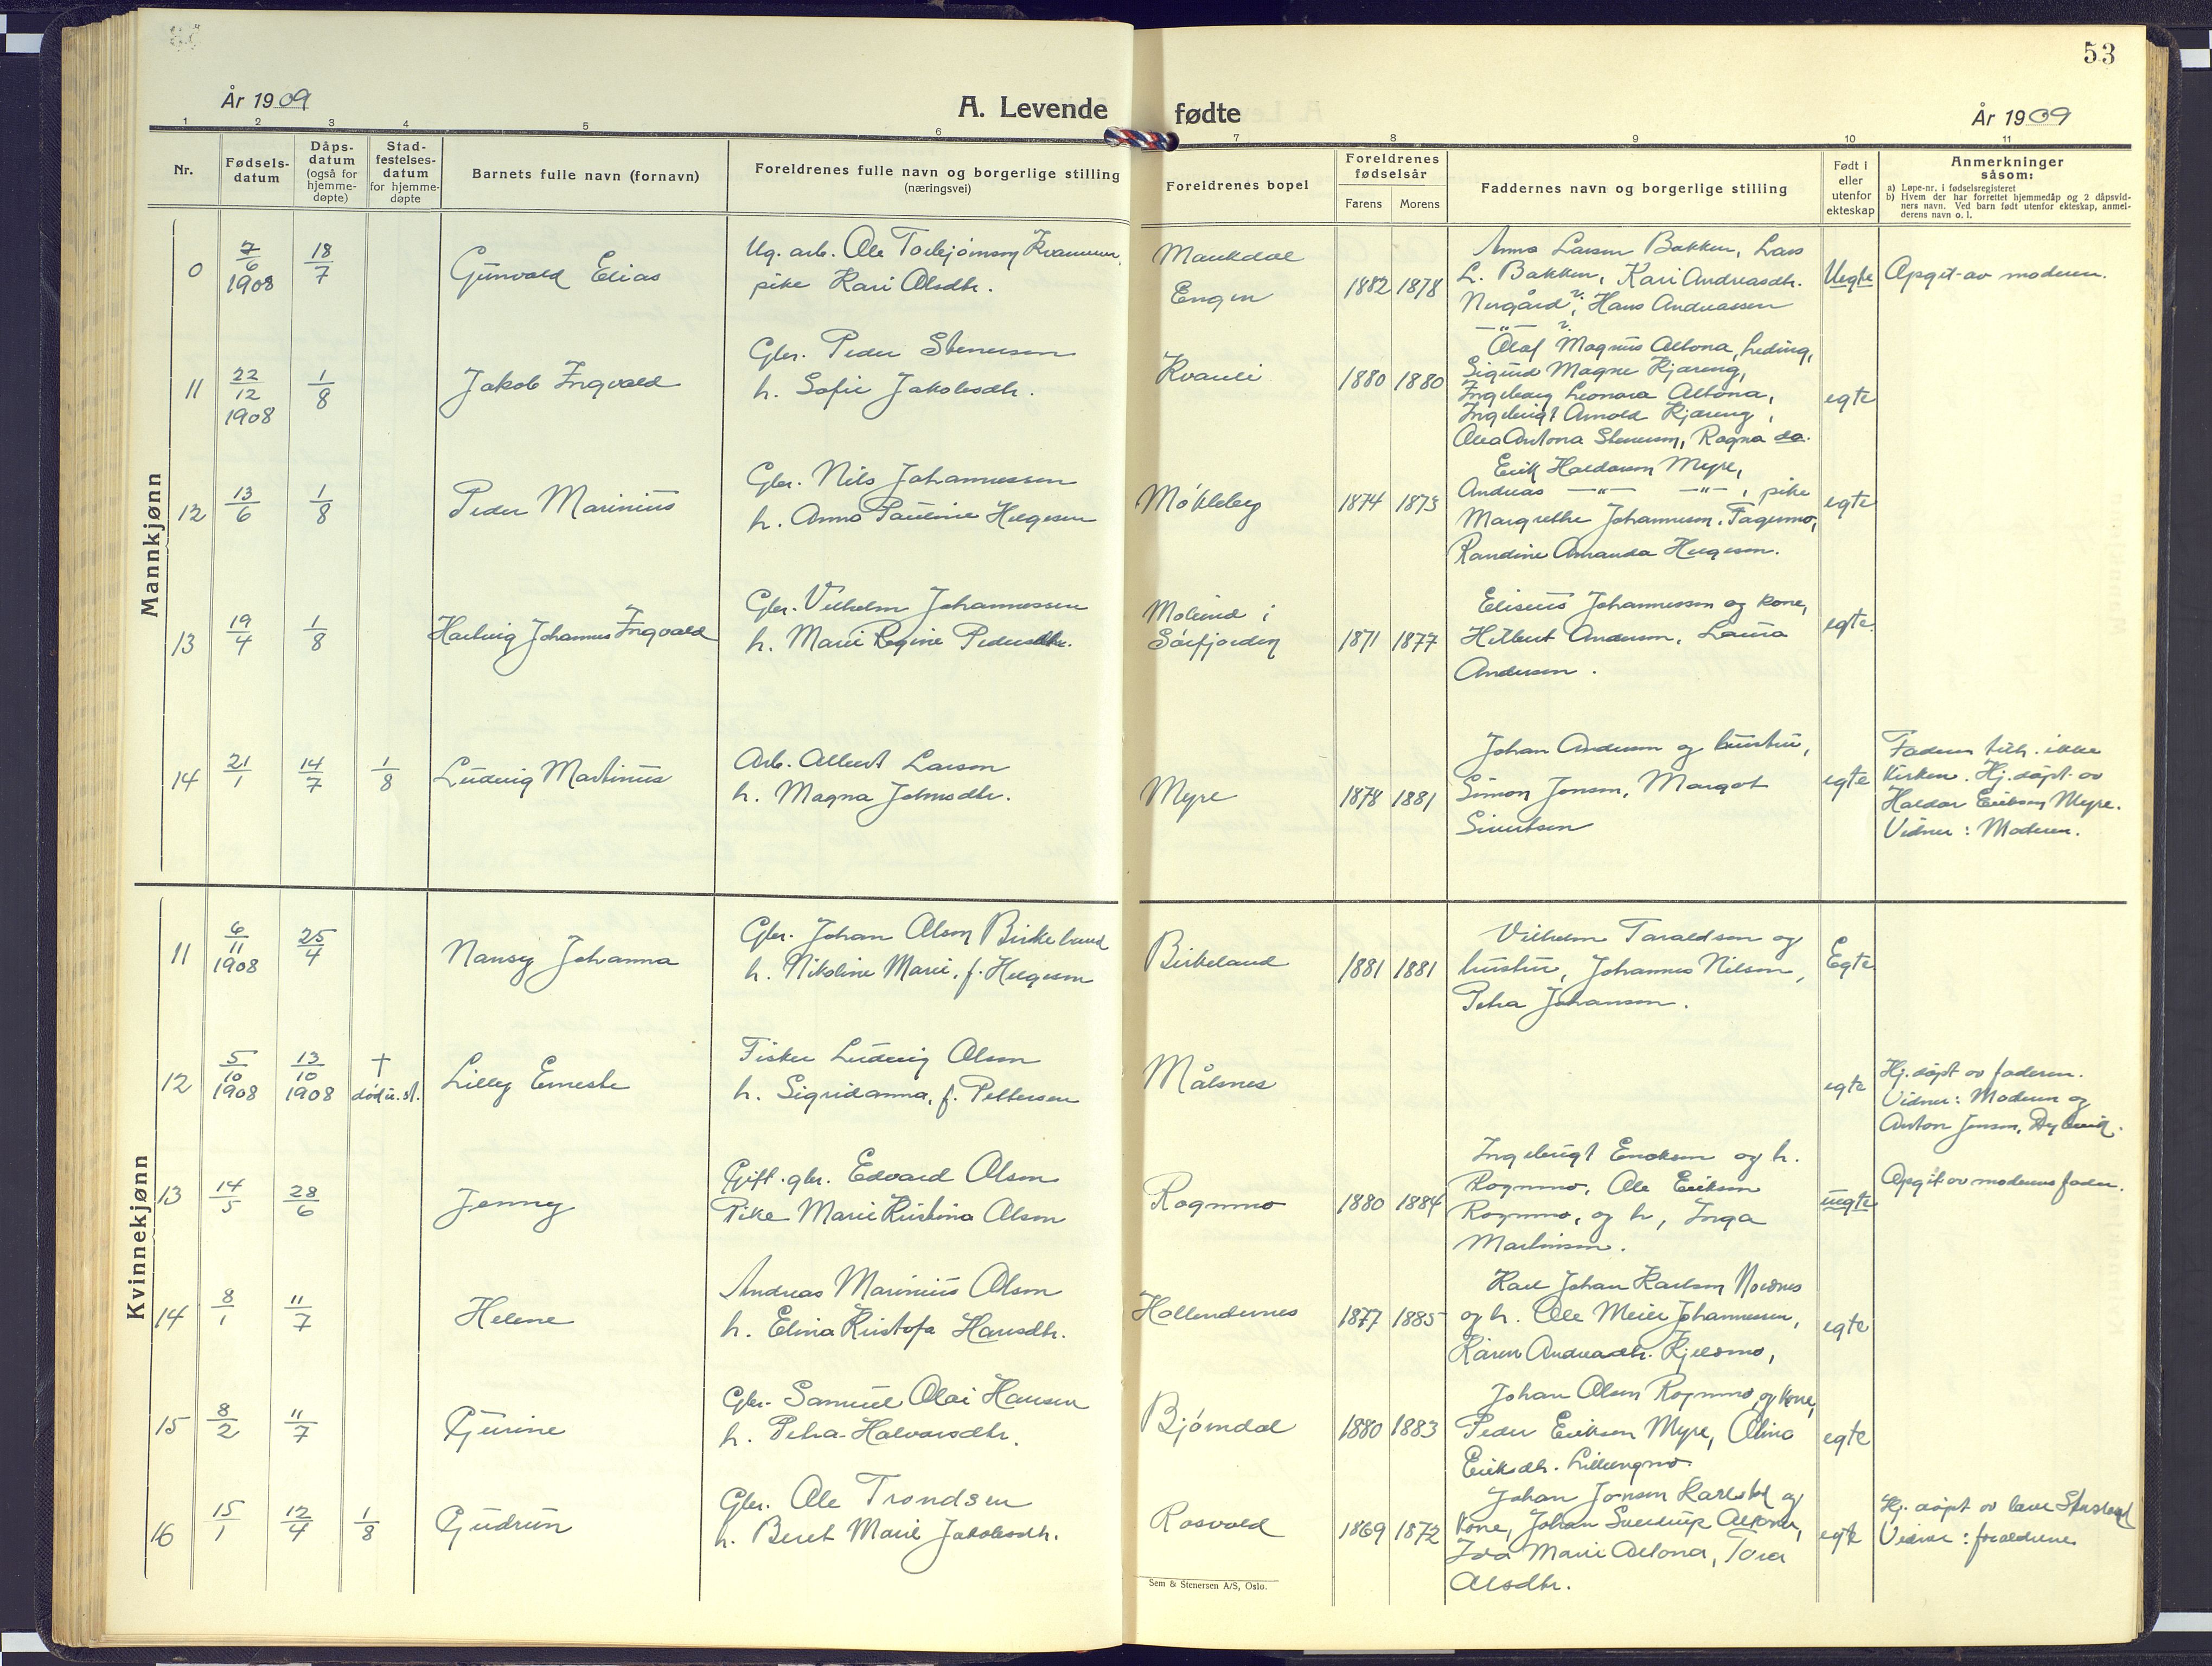 53
År 1909
A. Levende fødte
År 1909
1 2 3 4 5 6 7 8 9 10 11
Nr.
Fødsels-
datum
Dåps-
datum
(også for
hjemme-
døpte)
Stad-
festelses-
datum
for hjemme-
døpte
Barnets fulle navn (fornavn)
Foreldrenes fulle navn og borgerlige stilling
(næringsvei)
Foreldrenes bopel
Foreldrenes
fødselsår
Farens Morens
Faddernes navn og borgerlige stilling
Født i
eller
utenfor
ekteskap
Anmerkninger
såsom:
a) Løpe-nr. i fødselsregisteret
b) Hvem der har forrettet hjemmedåp og 2 dåpsvid-
ners navn. Ved barn født utenfor ekteskap, anmel-
derens navn o. l.
Mannkjønn
0 7/6 1908 18/7 Gunvald Elias
Ug. arb. Ole Torbjørnsen Kvammen,
pike Kari Olsdtr.
Maukdal
Engen
1882 1878
Anna Larsen Bakken, Lars
L. Bakken, Kari Andreasdtr.
Nergård, Hans Andreassen
—"—
Uegte
Opgit av moderen.
11 22/12 1908 1/8 Jakob Ingvald
Gbr. Peder Stenersen
h. Sofie Jakobsdtr.
Kvanli
1880 1880
Olaf Magnus Altona,
Sigurd Magne Kjæreng,
Ingeborg Leonora Altona,
Ingebrigt Arnold Kjæreng,
Olea Antona Stenersen, Ragna do.
egte
12 13/6 1/8 Peder Marinius
Gbr. Nils Johannessen
h. Anna Pauline Helgesen
Møkleby
1874 1873
Erik Haldorsen Myre,
Andreas —"— —"—, pike
Margrethe Johannesen, Fagermo,
Randine Amanda Helgesen.
egte
13 19/4 1/8 Hartvig Johannes Ingvald
Gbr. Vilhelm Johannessen
h. Marie Regine Pedersdtr.
Molund i
Sørfjorden
1871 1877
Eliseus Johannessen og kone,
Hilbert Andersen, Laura
Andersen.
egte.
14 21/1 14/7 1/8 Ludvig Martinius
Arb. Albert Larsen
h. Magna Johnsdtr.
Myre
1878 1881
Johan Andersen og hustru,
Simon Jensen, Margot
Sivertsen
egte
Faderen tilh. ikke
kirken. Hj. døpt av
Haldor Eriksen Myre.
Vidner: Moderen.
Kvinnekjønn
11 6/11 1908 25/4 Nansy Johanna
Gbr. Johan Olsen Birkeland
h. Nikoline Marie, f. Helgesen
Birkeland
1881 1881
Vilhelm Taraldsen og
hustru, Johannes Nilsen,
Petra Johansen.
Egte
12 5/10 1908 13/10 1908 † død u. st. Lilly Erneste
Fisker Ludvig Olsen
h. Sigridanna, f. Pettersen
Målsnes
egte
Hj. døpt av faderen.
Vidner: Moderen og
Anton Jensen,
13 14/5 28/6 Jenny
Gift. gbr. Edvard Olsen
Pike Marie Kristina Olsen
Rognmo
1880 1884
Ingebrigt Enoksen og h.
Rognmo, Ole Eriksen
Rognmo, og h, Inga
Martinsen.
uegte
Opgit av moderens fader.
14 8/1 11/7 Helene
Andreas Marinius Olsen
h. Elina Kristofa Hansdtr.
Hollendernes
1877 1885
Karl Johan Karlsen Nordnes
og h. Ole Meier Johannessen,
Karen Andreadtr. Kjelsmo,
egte
15 8/2 11/7 Gjurine
Gbr. Samuel Olai Hansen
h. Petra Halvorsdtr.
Bjørndal
1880 1883
Johan Olsen Rognmo, og kone,
Peder Eriksen Myre, Olina
Eriksdtr. Lillengmo.
egte
16 15/1 12/4 1/8 Gudrun
Gbr. Ole Trondsen
h. Beret Marie Jakobsdtr.
Rosvold
1869 1872
Johan Jensen Karlstad og
kone, Johan Sverdrup Altona,
Ida Marie Altona, Tora
Olsdtr.
egte
Hj. døpt av
Vidner: foreldrene
Sem & Stenersen A/S, Oslo.